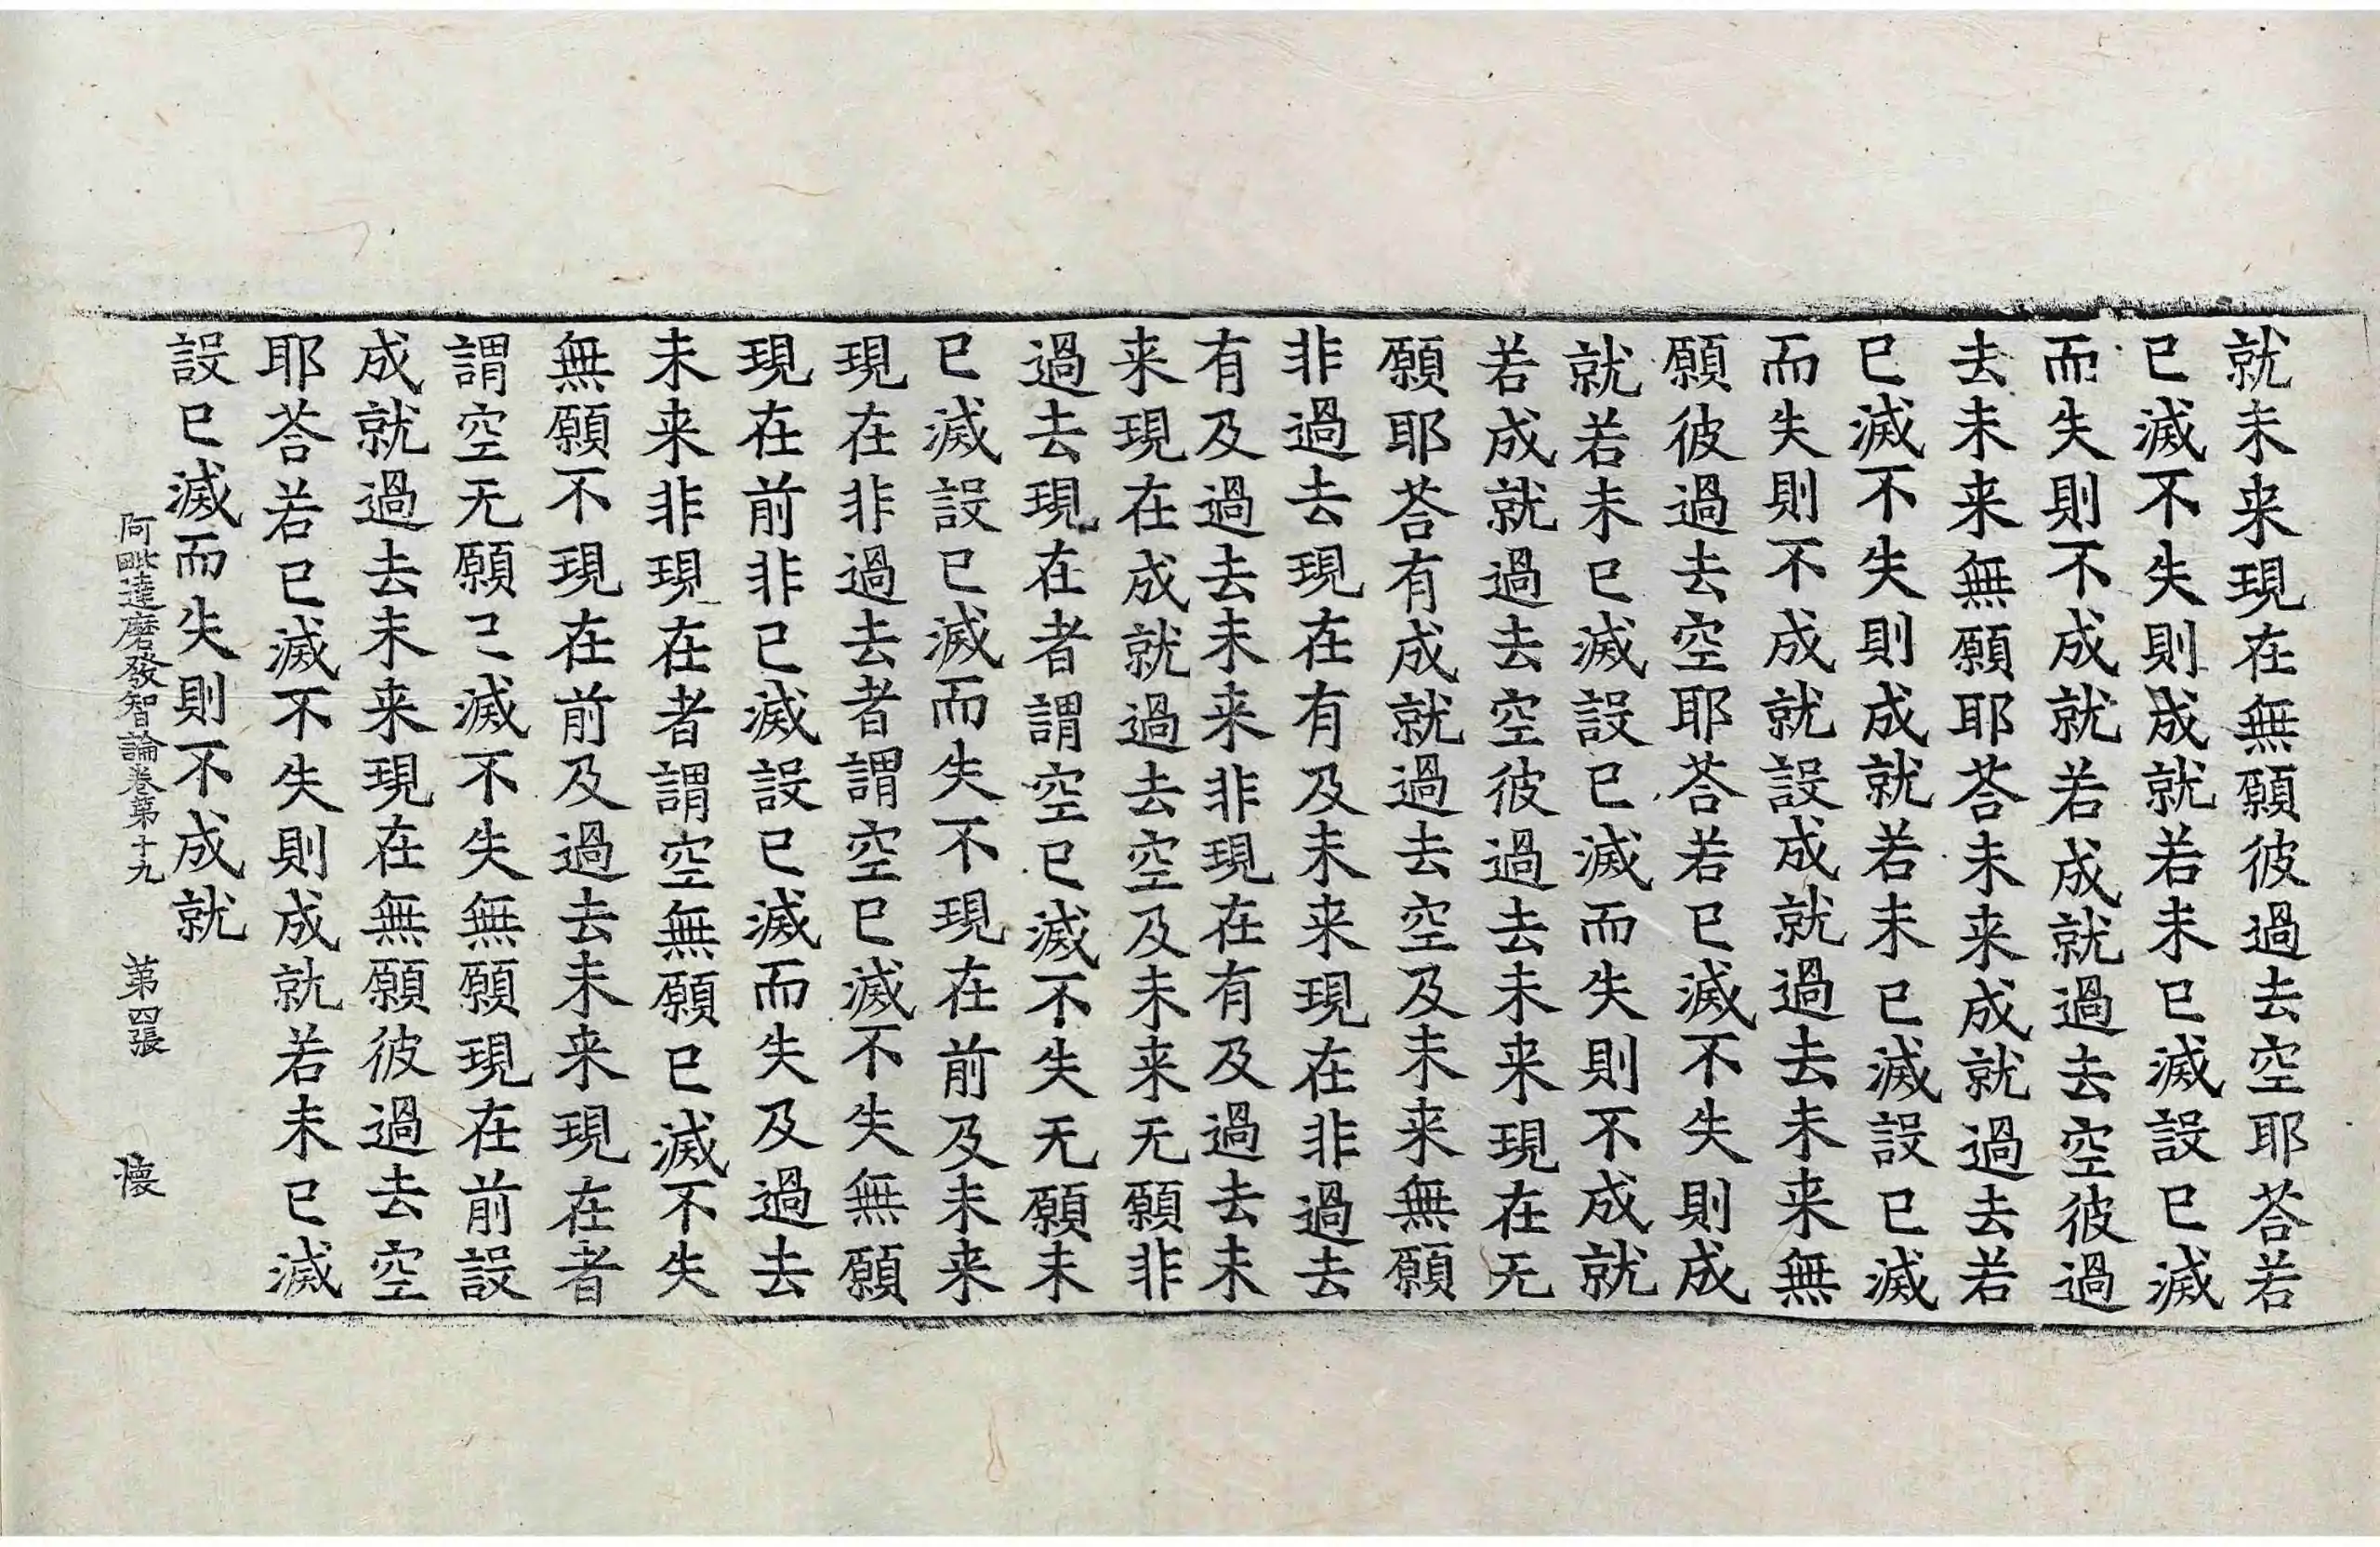 就未来現在無願彼過去空耶荅若
已滅不失則成就若未已滅設已滅
而失則不成就若成就過去空彼過
去未来無願耶荅未来成就過去若
已滅不失則成就若未已滅設已滅
而失則不成就設成就過去未来無
願彼過去空耶荅若已滅不失則成
就若未已滅設已滅而失則不成就
若成就過去空彼過去未来現在无
願耶荅有成就過去空及未来無願
非過去現在有及未来現在非過去
有及過去未来非現在有及過去未
来現在成就過去空及未来无願非
過去現在者謂空已滅不失无願未
已滅設已滅而失不現在前及未来
現在非過去者謂空已滅不失無願
現在前非已滅設已滅而失及過去
未来非現在者謂空無願已滅不失
無願不現在前及過去未来現在者
謂空无願已滅不失無願現在前設
成就過去未来現在無願彼過去空
耶荅若已滅不失則成就若未已滅
設已滅而失則不成就
阿毗達磨發智論卷第十九 第四張 懐